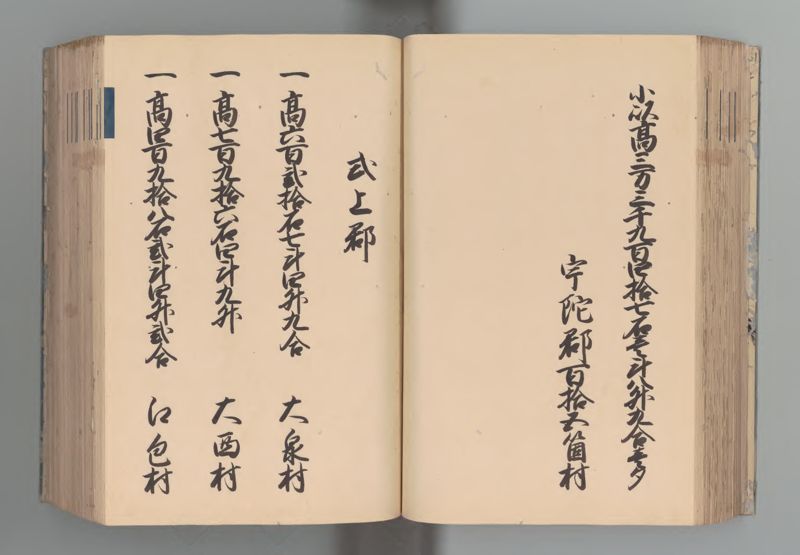 小以高三万三千九百四拾七石壱斗八升九合壱夕
宇陀郡百拾五箇村
式上郡
一高六百弐拾石七斗四升九合　大泉村
一高七百九拾六石四斗九升　大西村
一高四百九拾八石弐斗四升弐合　江包村